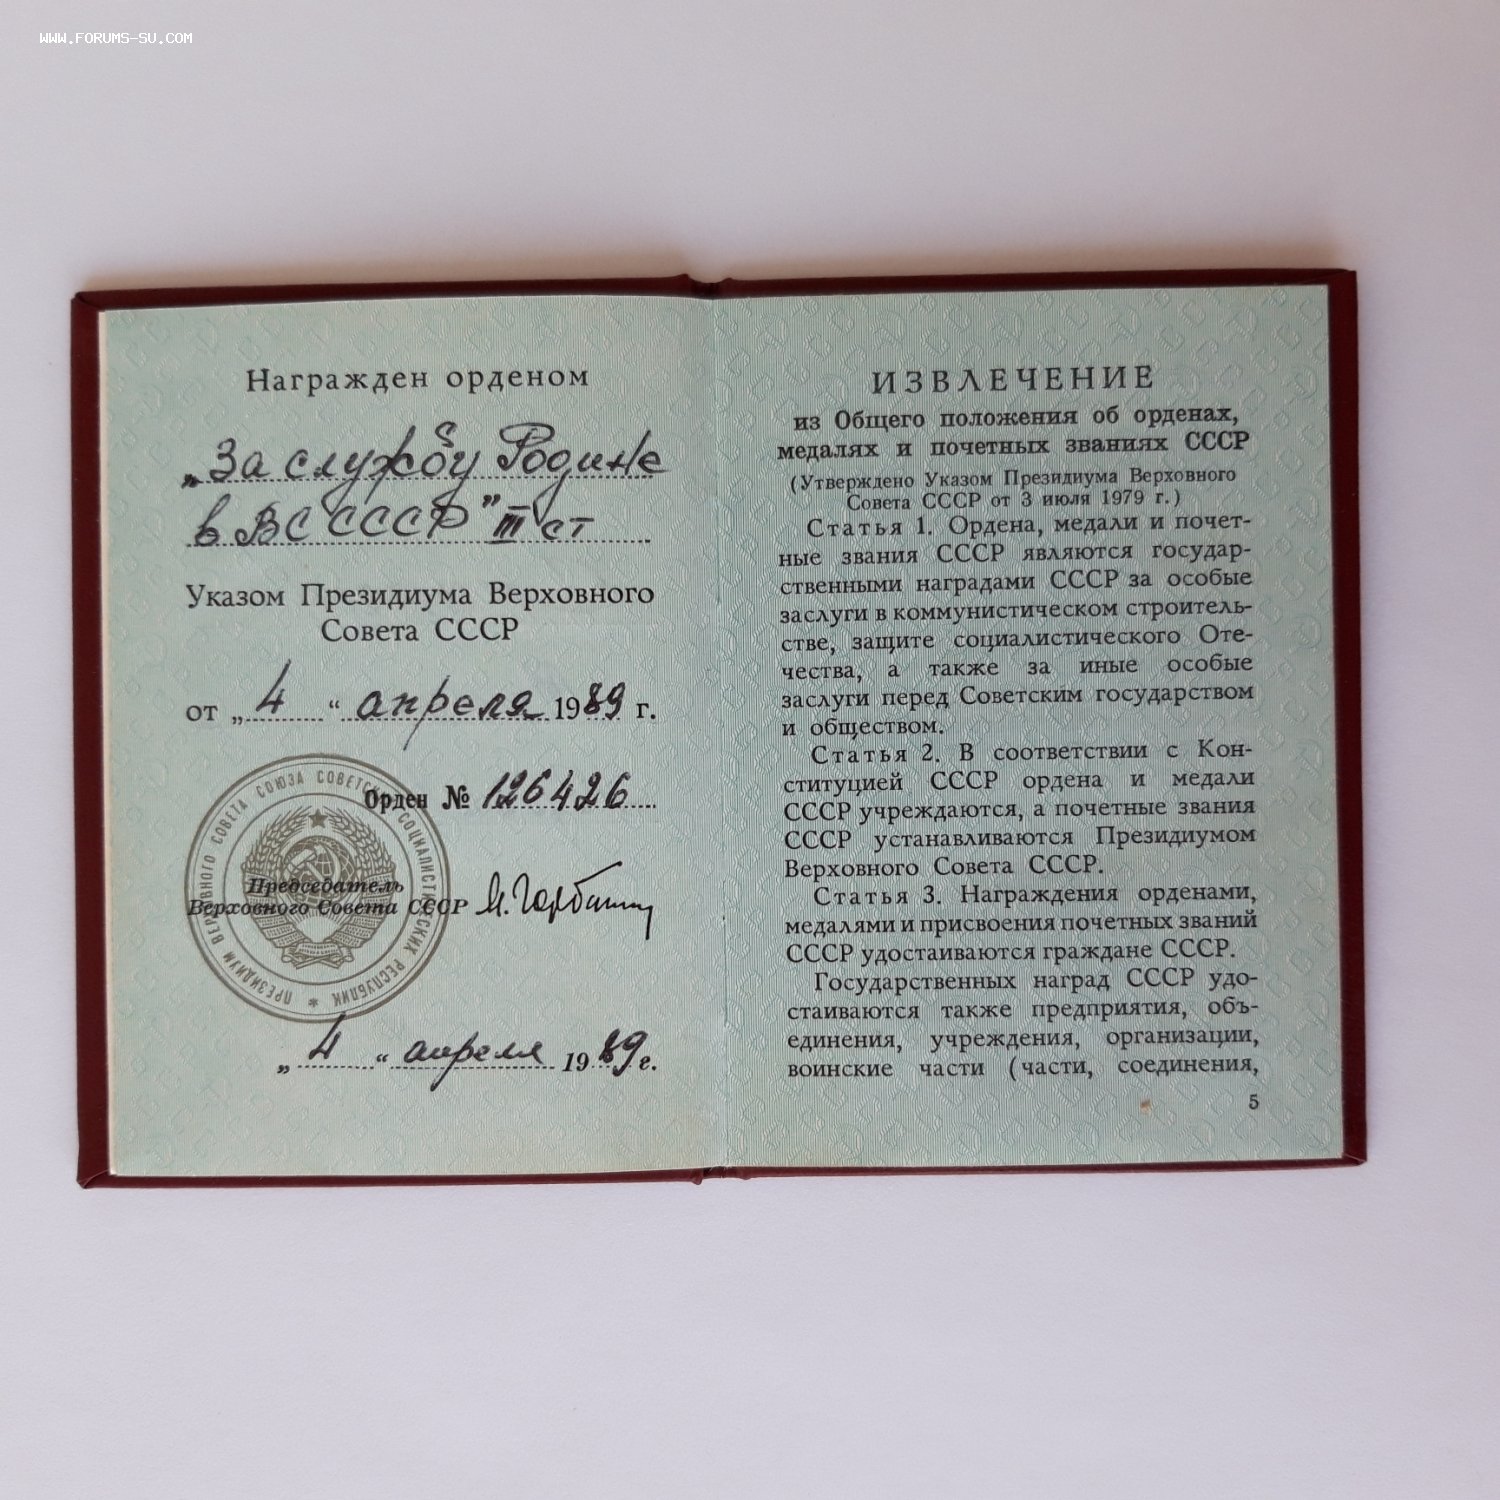 WWW.FORUMS-SU.COM
Награжден орденом
„За службу Родине
в ВС СССР" III ст
Указом Президиума Верховного
Совета СССР
от „ 4 “ апреля 1989 г.
Орден № 126426
Председатель
Верховного Совета СССР М. Горбачев
„ 4 “ апреля 1989 г.
ПРЕЗИДИУМ ВЕРХОВНОГО СОВЕТА СОЮЗА СОВЕТСКИХ СОЦИАЛИСТИЧЕСКИХ РЕСПУБЛИК *
ИЗВЛЕЧЕНИЕ
из Общего положения об орденах,
медалях и почетных званиях СССР
(Утверждено Указом Президиума Верховного
Совета СССР от 3 июля 1979 г.)
Статья 1. Ордена, медали и почет-
ные звания СССР являются государ-
ственными наградами СССР за особые
заслуги в коммунистическом строитель-
стве, защите социалистического Оте-
чества, а также за иные особые
заслуги перед Советским государством
и обществом.
Статья 2. В соответствии с Кон-
ституцией СССР ордена и медали
СССР учреждаются, а почетные звания
СССР устанавливаются Президиумом
Верховного Совета СССР.
Статья 3. Награждения орденами,
медалями и присвоения почетных званий
СССР удостаиваются граждане СССР.
Государственных наград СССР удо-
стаиваются также предприятия, объ-
единения, учреждения, организации,
воинские части (части, соединения,
5